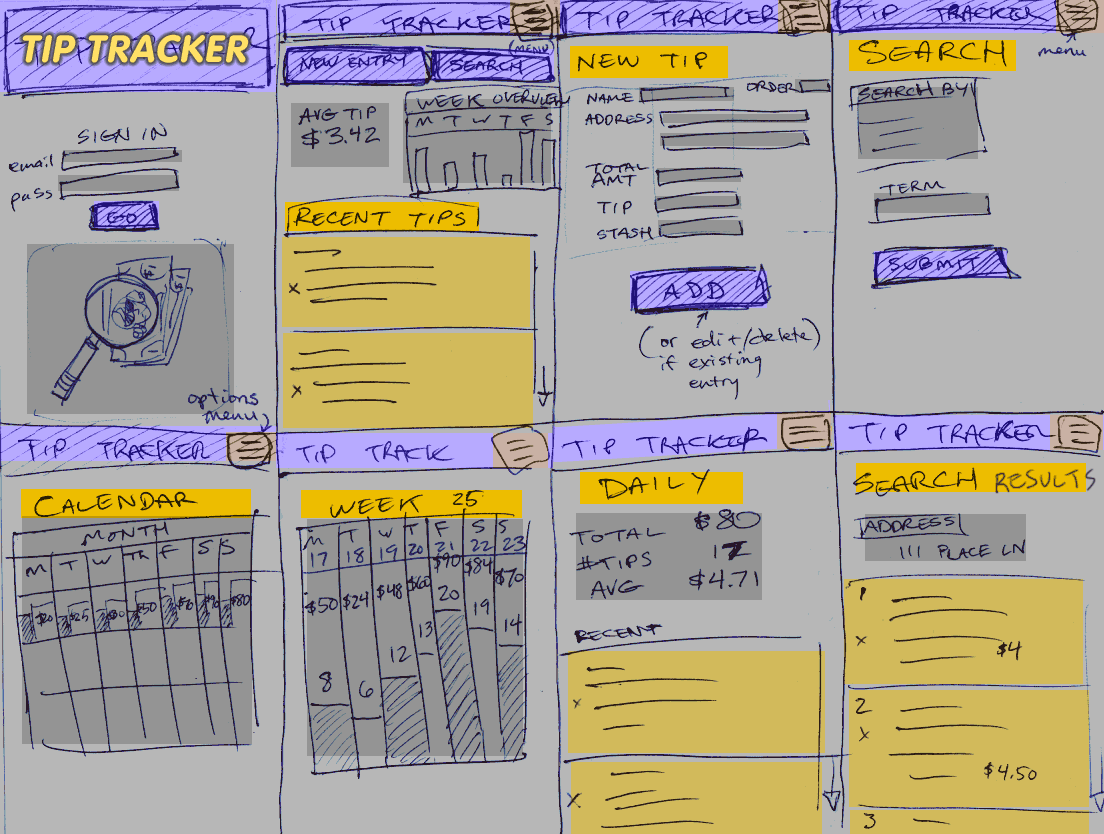 TIP TRACKER
SIGN IN
email
pass
GO
$1
$1
options
menu
TIP TRACKER
(MENU)
NEW ENTRY
SEARCH
AVG TIP
$3.42
WEEK OVERVIEW
M T W T F S
RECENT TIPS
x
x
TIP TRACKER
NEW TIP
NAME
ORDER
ADDRESS
TOTAL
AMT
TIP
STASH
ADD
(or edit/delete)
if existing
entry
TIP TRACKER
menu
SEARCH
SEARCH BY
TERM
SUBMIT
TIP TRACKER
CALENDAR
MONTH
M T W TH F S S
$25 $50 $80
TIP TRACK
WEEK 25
M T W T F S S
17 18 19 20 21 22 23
$50 $24 $48 $60 $90 $84 $70
8 6 12 13 20 19 14
TIP TRACKER
DAILY
TOTAL $80
#TIPS 17
AVG $4.71
RECENT
x
x
TIP TRACKER
SEARCH RESULTS
ADDRESS
111 PLACE LN
1
x
$4
2
x
$4.50
3